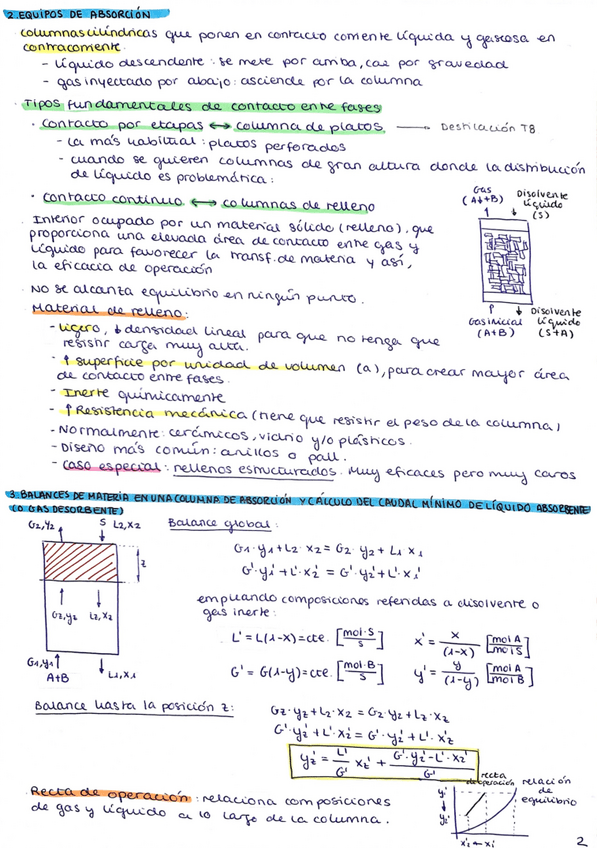 2. EQUIPOS DE ABSORCIÓN
columnas cilíndricas que ponen en contacto corriente líquida y gaseosa en
contracorriente.
- líquido descendente: se mete por arriba, cae por gravedad
- gas inyectado por abajo: asciende por la columna
Tipos fundamentales de contacto entre fases
· contacto por etapas ↔ columna de platos. → Destilación T8
- la más habitual: platos perforados
- cuando se quieren columnas de gran altura donde la distribución
de líquido es problemática:
· contacto continuo ↔ columnas de relleno
Gas
(A↓+B)
Disolvente
líquido
(S)
Interior ocupado por un material sólido (relleno), que
proporciona una elevada área de contacto entre gas y
líquido para favorecer la transf. de materia y así,
la eficacia de operación
No se alcanza equilibrio en ningún punto.
Gas inicial
(A+B)
Disolvente
líquido
(S+A)
Material de relleno:
- ligero, ↓ densidad lineal para que no tenga que
resistir carga muy alta.
- ↑ superficie por unidad de volumen (a), para crear mayor área
de contacto entre fases.
- Inerte químicamente
- ↑ Resistencia mecánica (tiene que resistir el peso de la columna)
- Normalmente: cerámicos, vidrio y/o plásticos.
- Diseño más común: anillos o pall.
- caso especial: rellenos estructurados. Muy eficaces pero muy caros
3. BALANCES DE MATERIA EN UNA COLUMNA DE ABSORCIÓN Y CÁLCULO DEL CAUDAL MÍNIMO DE LÍQUIDO ABSORBENTE
(O GAS DESORBENTE)
G2, y2 S L2, x2
Balance global:
G1·y1+L2 x2 = G2 y2 + L1 x1
G'·y1'+L'·x2' = G'·y2'+L'·x1'
z
Gz, yz Lz, xz
empleando composiciones referidas a disolvente o
gas inerte:
L' = L(1-x)=cte. [mol·S/s] x' = x/(1-x) [mol A/mol S]
G' = G(1-y)=cte. [mol·B/s] y' = y/(1-y) [mol A/mol B]
G1, y1
A+B
L1, x1
Balance hasta la posición z:
Gz·yz+L2·x2 = G2·y2+Lz·xz
G'·yz'+L'·x2' = G'·y2'+L'·xz'
yz' = L'/G' xz' + G'·y2'-L'·x2'/G'
Recta de operación: relaciona composiciones
de gas y líquido a lo largo de la columna.
recta
de operación
relación
de
equilibrio
y1'
y2'
x2' ← x1'
2